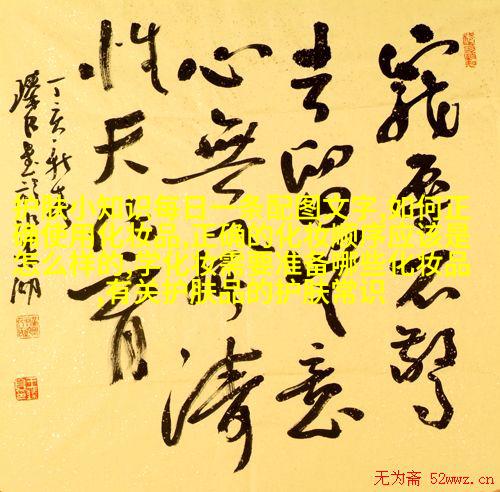 寵辱不驚
去留無意
心無風濤
性天化育
护肤小知识每日一条配图文字,如何正
确使用化妆品,正确的化妆顺序应该是
怎么样的,学化妆需要准备哪些化妆品
,有关护肤品的护肤常识
无为斋 52wwz.cn